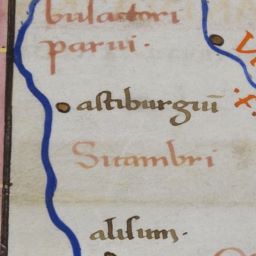 bulactori
parui.
astiburgiū
Sicambri
alisum.